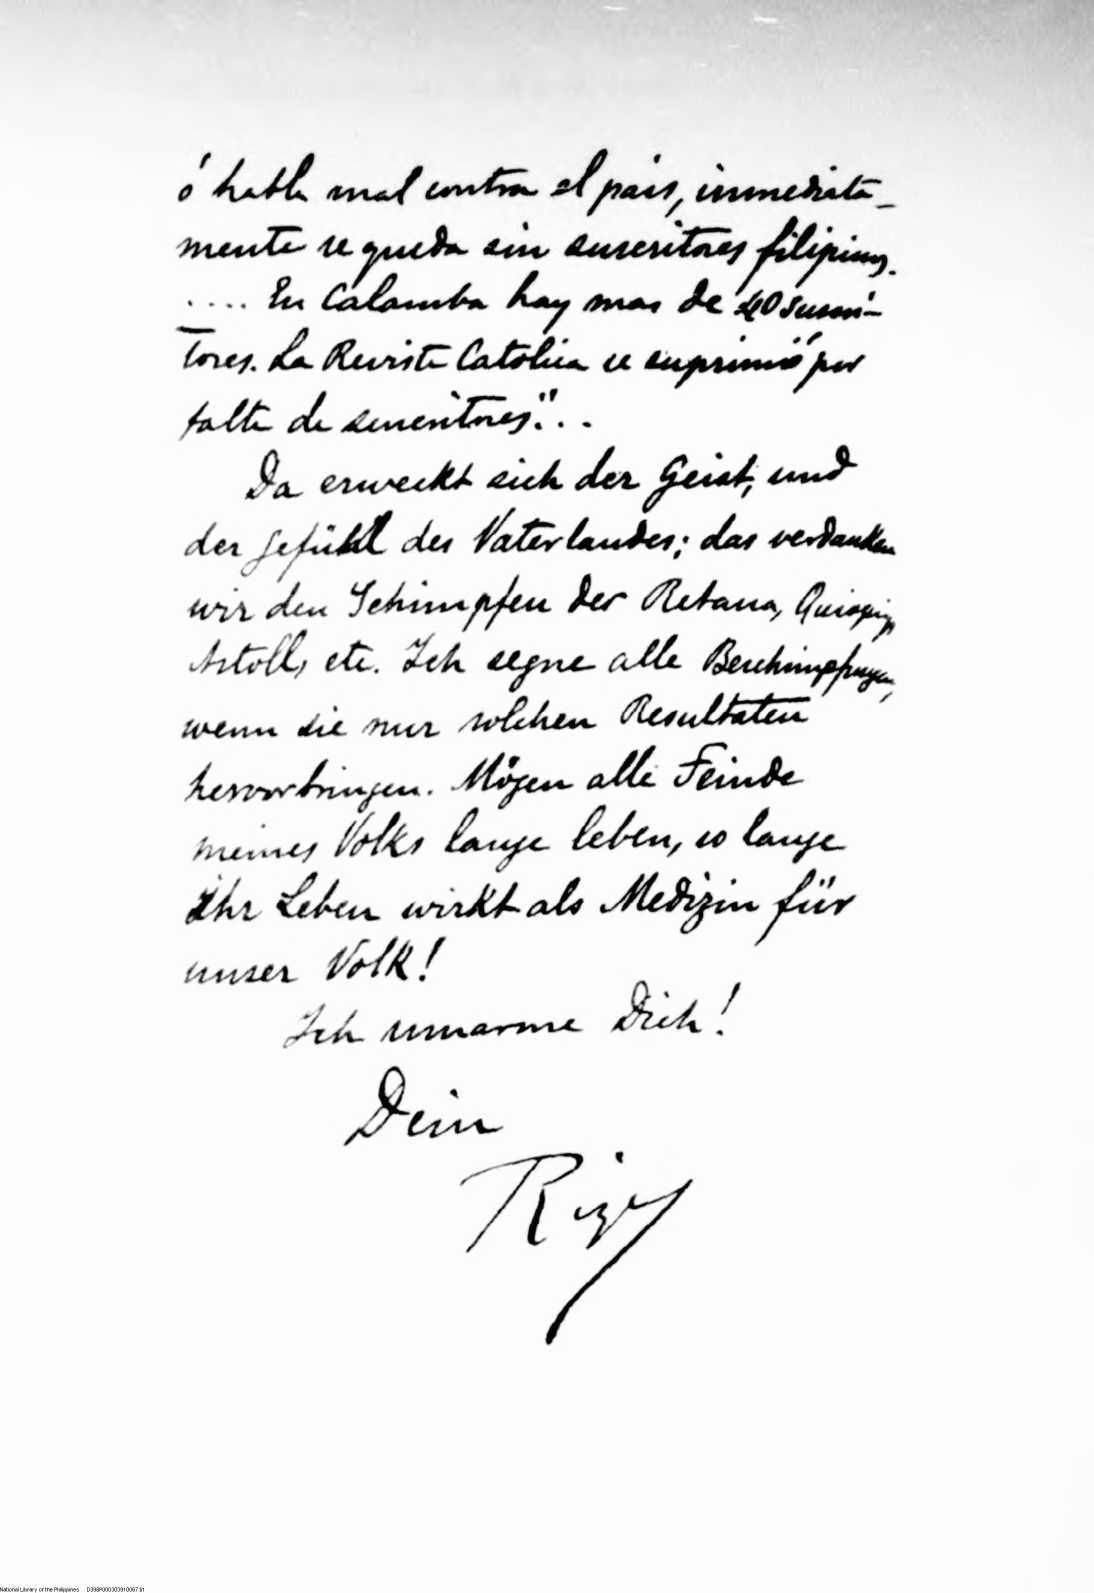 ó habla mal contra el país, inmediata-
mente se queda sin suscritores filipinos.
.... En Calamba hay mas de 40 suscri-
tores. La Revista Católica se suprimió por
falta de suscritores"...
Da erweckt sich der Geist, und
der Gefühl des Vaterlandes; das verdanken
wir den Schimpfen der Retana, Quioquiap
Astoll, etc. Ich segne alle Beschimpfungen,
wenn sie nur solchen Resultaten
hervorbringen. Mögen alle Feinde
meines Volks lange leben, so lange
ihr Leben wirkt als Medizin für
unser Volk!
Ich umarme Dich!
Dein
Rizal
National Library of the Philippines D398P000303910067.tif